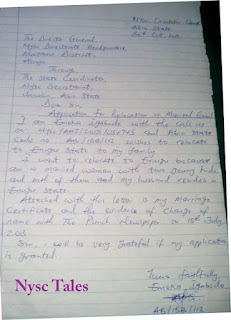 Nysc Orientation Camp
Abia State
The Director General,
Nysc Directorate Headquarters
District,
Abuja
Through
The State Coordinator
Nysc Secretariat,
Abia State
Dear Sir,
Application for Relocation on Marital Ground
I am Emeka with the call up
no and Abia State
Code no wishes to relocate
to Enugu State to my family
I want to relocate to Enugu because
am a married woman with two young kids
and both of them and my husband resides in
Enugu State.
Attached with this letter is my Marriage
Certificate and the evidence of Change of
name with The Punch Newspaper on 15th July,
Sir, I will be very grateful if my application
is granted.
Yours faithfully,
Emeka
AB/15B/112
Nysc Tales